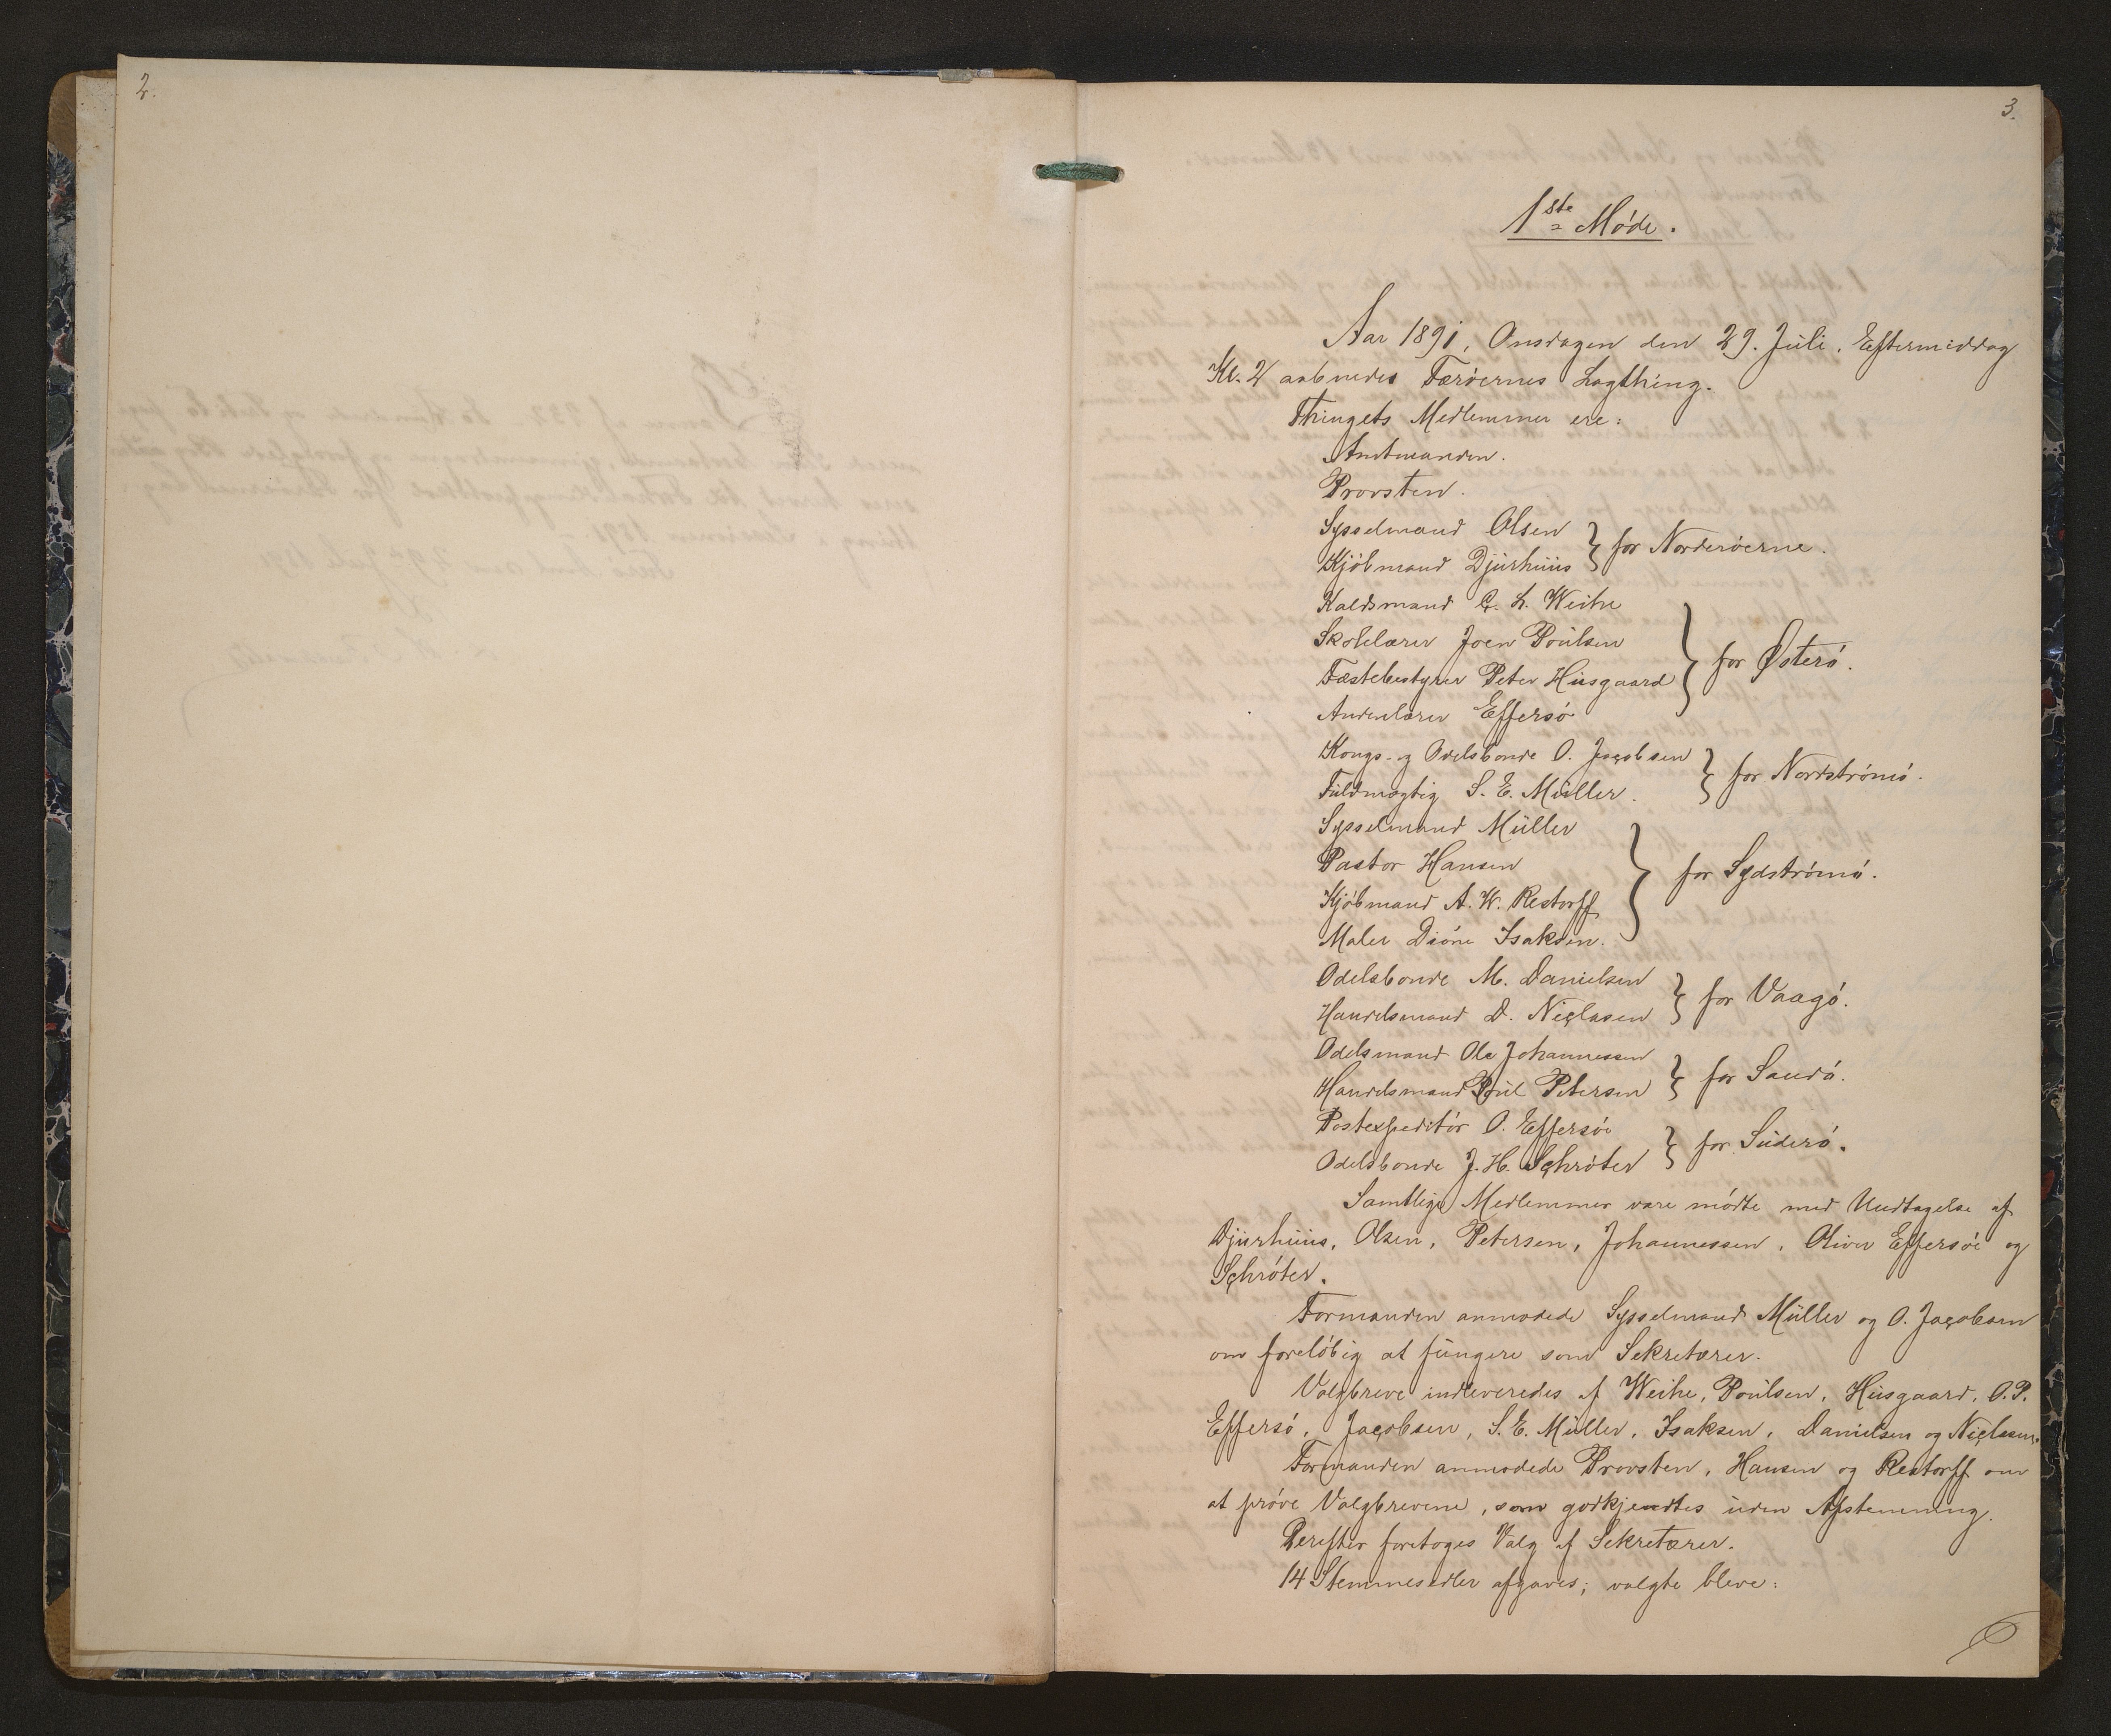 2.
3.
1ste Møde.
Aar 1891, Onsdagen den 29. Juli, Eftermiddag
Kl. 2 aabnedes Færøernes Lagthing.
Thingets Medlemmer ere:
Amtmanden.
Provsten.
Sysselmand Olsen
Kjøbmand Djurhuus } for Norderøerne.
Kaldsmand C. L. Weihe
Skolelærer Joen Poulsen
Fæstebestyrer Peter Husgaard } for Østerø.
Andenlærer Effersø
Kongs- og Odelsbonde O. Jacobsen
Fuldmægtig S. E. Müller. } for Nordstrømø.
Sysselmand Müller
Pastor Hansen } for Sydstrømø.
Kjøbmand A. W. Restorff
Maler Dione Isaksen.
Odelsbonde M. Danielsen
Handelsmand D. Niclasen } for Vaagø.
Odelsmand Ole Johannessen
Handelsmand Poul Petersen } for Sandø.
Postexpeditør O. Effersøe
Odelsbonde J. H. Schrøter } for Suderø.
Samtlige Medlemmer vare mødte med Undtagelse af
Djurhuus, Olsen, Petersen, Johannessen, Oliver Effersøe og
Schrøter.
Formanden anmodede Sysselmand Müller og O. Jacobsen
om foreløbig at fungere som Sekretærer.
Valgbreve indleveredes af Weihe, Poulsen, Husgaard, O. P.
Effersø, Jacobsen, S. E. Müller, Isaksen, Danielsen og Niclasen.
Formanden anmodede Provsten, Hansen og Restorff om
at prøve Valgbrevene, som godkjendtes uden Afstemning.
Derefter foretoges Valg af Sekretærer.
14 Stemmesedler afgaves; valgte bleve: